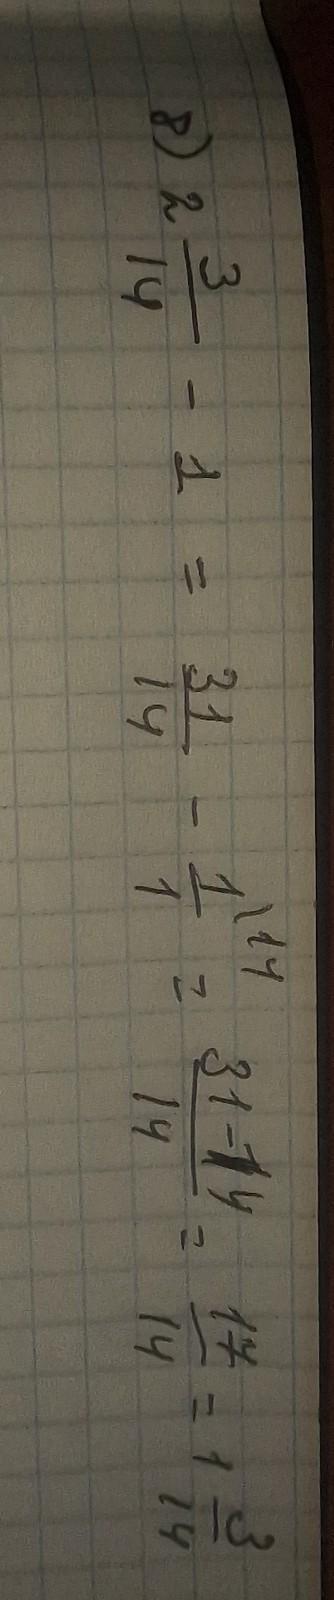 8) 2 3/14 - 1 = 31/14 - 1/1 \14 = 31-14/14 = 17/14 = 1 3/14